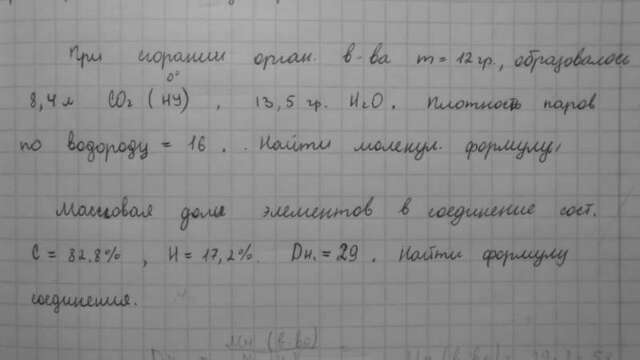 При сгорании орган. в-ва m = 12 гр., образовалось
0°
8,4 л CO₂ (НУ), 13,5 гр. H₂O. Плотность паров
по водороду = 16. Найти молекул. формулу
Массовая доля элементов в соединение сост.
C = 82,8%, H = 17,2%. Dн. = 29. Найти формулу
соединения.